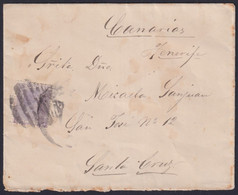 Canarias
Tenerife
Srita Dña
Micaela Sanjuan
San José nº 12
Santa Cruz